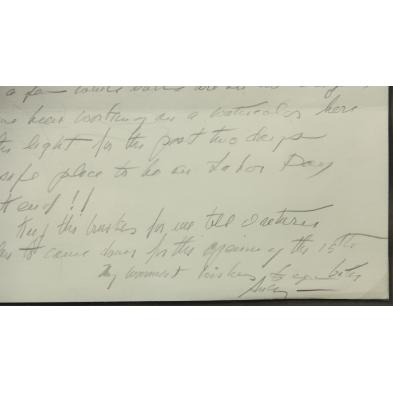 a few
been working on a watercolor here
the light for the past two days
safe place to be on Labor Day
end!!
Keep the brushes for me till
to come down for the opening the 15th
My warmest wishes to you both